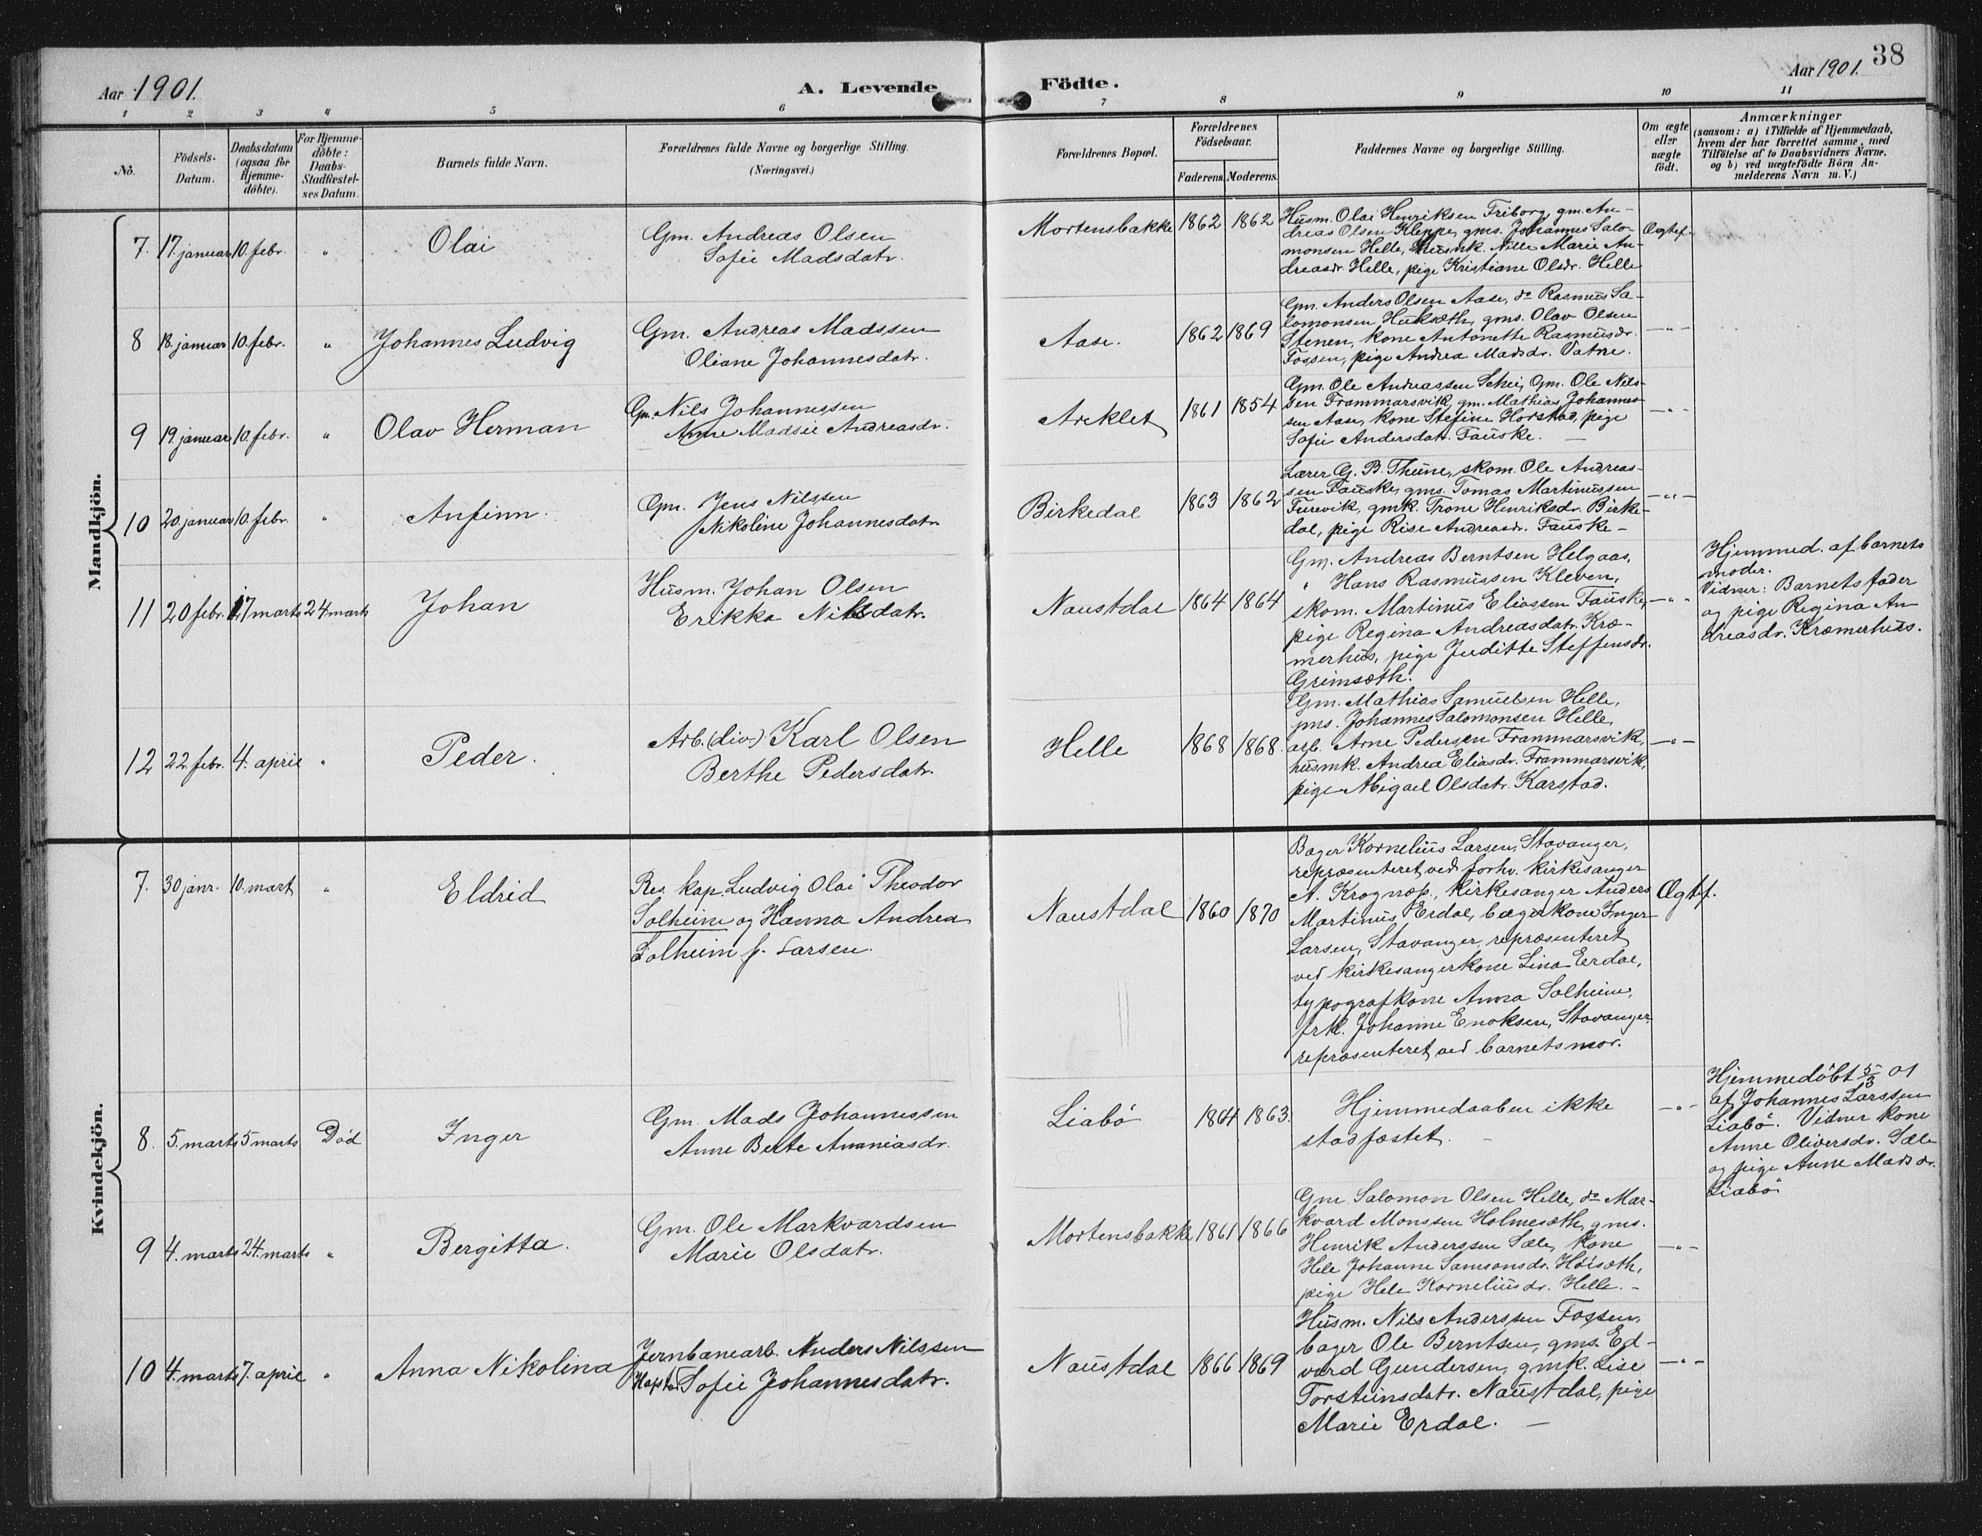 Aar 1901.
A. Levende
Födte.
Aar 1901.
38
1 2 3 4 5 6 7 8 9 10 11
No.
Födsels-
Datum.
Daabsdatum
(ogsaa for
Hjemme-
döbte).
For Hjemme-
döbte:
Daabs-
Stadfæstel-
ses Datum.
Barnets fulde Navn.
Forældrenes fulde Navne og borgerlige Stilling.
(Næringsvei.)
Forældrenes Bopæl.
Forældrenes
Födselsaar.
Faderens. Moderens.
Faddernes Navne og borgerlige Stilling.
Om ægte
eller
uægte
födt.
Anmærkninger
(saasom: a) i Tilfælde af Hjemmedaab,
hvem der har forrettet samme, med
Tilföielse af to Daabsvidners Navne,
og b) ved uægtefödte Börn An-
melderens Navn m. V.)
Mandkjön.
7. 17. januar 10. febr. " Olai
Gm. Andreas Olsen
Sofie Madsdatr.
Mortensbakke 1862 1862
Husm. Olai Henriksen Friborg, gm. An-
dreas Olsen Kleppe, gms. Johannes Salo-
monsen Helle, husmk. Nille Marie An-
dreasdr. Helle, pige Kristiane Olsdr. Helle
Ægtef.
8 18. januar 10. febr. " Johannes Ludvig
Gm. Andreas Madssen
Oliane Johannesdatr.
Aase. 1862 1869
Gm. Anders Olsen Aase, do Rasmus Sa-
lomonsen Huksæth, gms. Olav Olsen
Stenen, kone Antonette Rasmusdr.
Fossen, pige Andrea Madsdr. Vatne.
—"—
9 19. januar 10. febr. " Olav Herman
Gm. Nils Johannessen
Anne Madsie Andreasdr.
Areklet 1861 1854
Gm. Ole Andreassen Schei, Gm. Ole Nils-
sen Frammarsvik, gm. Mathias Johannes-
sen Aase, kone Stefine Horstad, pige
Sofie Andersdatr. Fauske. —
—"—
10 20. januar 10. febr. " Anfinn.
Gm. Jens Nilssen
Nikoline Johannesdatr.
Birkedal 1863 1862
Lærer G. B. Thune, skom. Ole Andreas-
sen Fauske, gms. Tomas Martinussen
Furevik, gmk. Trone Henriksdr. Birke-
dal, pige Rise Andreasdr. Fauske —
—"—
11 20 febr. 17 marts 24 marts Johan
Husm. Johan Olsen
Erikka Nilsdatr.
Naustdal 1864 1864
Gm. Andreas Berntsen Helgaas,
" Hans Rasmussen Kleven,
skom. Martinus Eliassen Fauske,
pige Regina Andreasdatr. Kræ-
merhus, pige Juditte Steffensdr.
Grimsæth.
—"—
Hjemmed. af barnets
moder.
Vidner: Barnets fader
og pige Regina An
dreasdr. Kræmerhus.
12 22 febr. 4. april " Peder.
Arb. (div.) Karl Olsen
Berthe Pedersdatr.
Helle 1868 1868.
Gm. Mathias Samuelsen Helle,
gms. Johannes Salomonsen Helle,
arb. Arne Pedersen Frammarsvik,
husmk. Andrea Eliasdr. Frammarsvik,
pige Abigael Olsdatr. Karstad.
—"—
Kvindekjön.
7. 30 janr. 10. mart " Eldrid
Res. kap. Ludvig Olai Theodor
Solheim og Hanna Andrea
Solheim f. Larsen.
Naustdal 1860 1870
Bager Kornelius Larsen, Stavanger,
repræsenteret ved forhv. kirkesanger
A. Krognæs, kirkesanger Anders
Martinus Erdal, bagerkone Inger
Larsen, Stavanger, repræsenteret
ved kirkesangerkone Lina Erdal,
typografkone Anna Solheim,
frk. Johanne Enoksen, Stavanger,
repræsenteret ved barnets mor.
Ægtef.
8. 5. marts 5 marts Död Inger
Gm. Mads Johannessen
Anne Berte Ananiasdr.
Liabö 1864 1863.
Hjemmedaaben ikke
stadfæstet. —
—"—
Hjemmedöbt 5/3 01
af Johannes Larssen
Liabö. Vidner kone
Anne Oliversdr. Sæle
og pige Anne Madsdr.
Liabö
9 4. marts 24. marts " Bergitta.
Gm. Ole Markvardsen
Marie Olsdatr.
Mortensbakke 1861 1866
Gm Salomon Olsen Helle, do Mar-
kvard Monssen Holmesæth, gms.
Henrik Anderssen Sæle, kone
Hele Johanne Samsonsdr. Höisæth,
pige Hele Korneliusdr. Helle. —
—"—
10 4. marts 7. april " Anna Nikolina
Jernbanearb. Anders Nilssen
Sofie Johannesdatr.
Naustdal 1866 1869
Husm. Nils Anderssen Fossen,
bager Ole Berntsen, gms. Ed-
vard Gundersen, gmk. Lise
Torsteinsdatr. Naustdal, pige
Marie Erdal. —
—"—